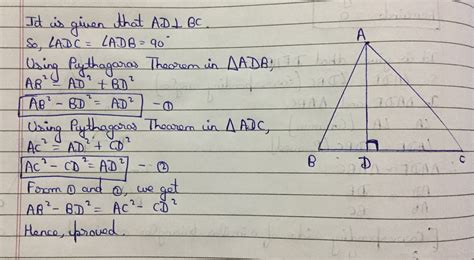 It is given that AD⊥ BC.
So, ∠ADC = ∠ADB = 90°
Using Pythagoras Theorem in △ADB,
AB² = AD² + BD²
AB² - BD² = AD² — ①
Using Pythagoras Theorem in △ADC,
AC² = AD² + CD²
AC² - CD² = AD² — ②
Form ① and ②, we get
AB² - BD² = AC² - CD²
Hence, proved.
A
B
D
C